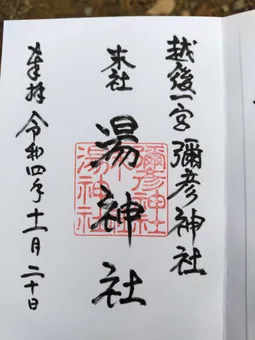 越後一宮 彌彦神社
末社
湯神社
彌彦神社
末社
湯神社
奉拝 令和四年十一月二十日